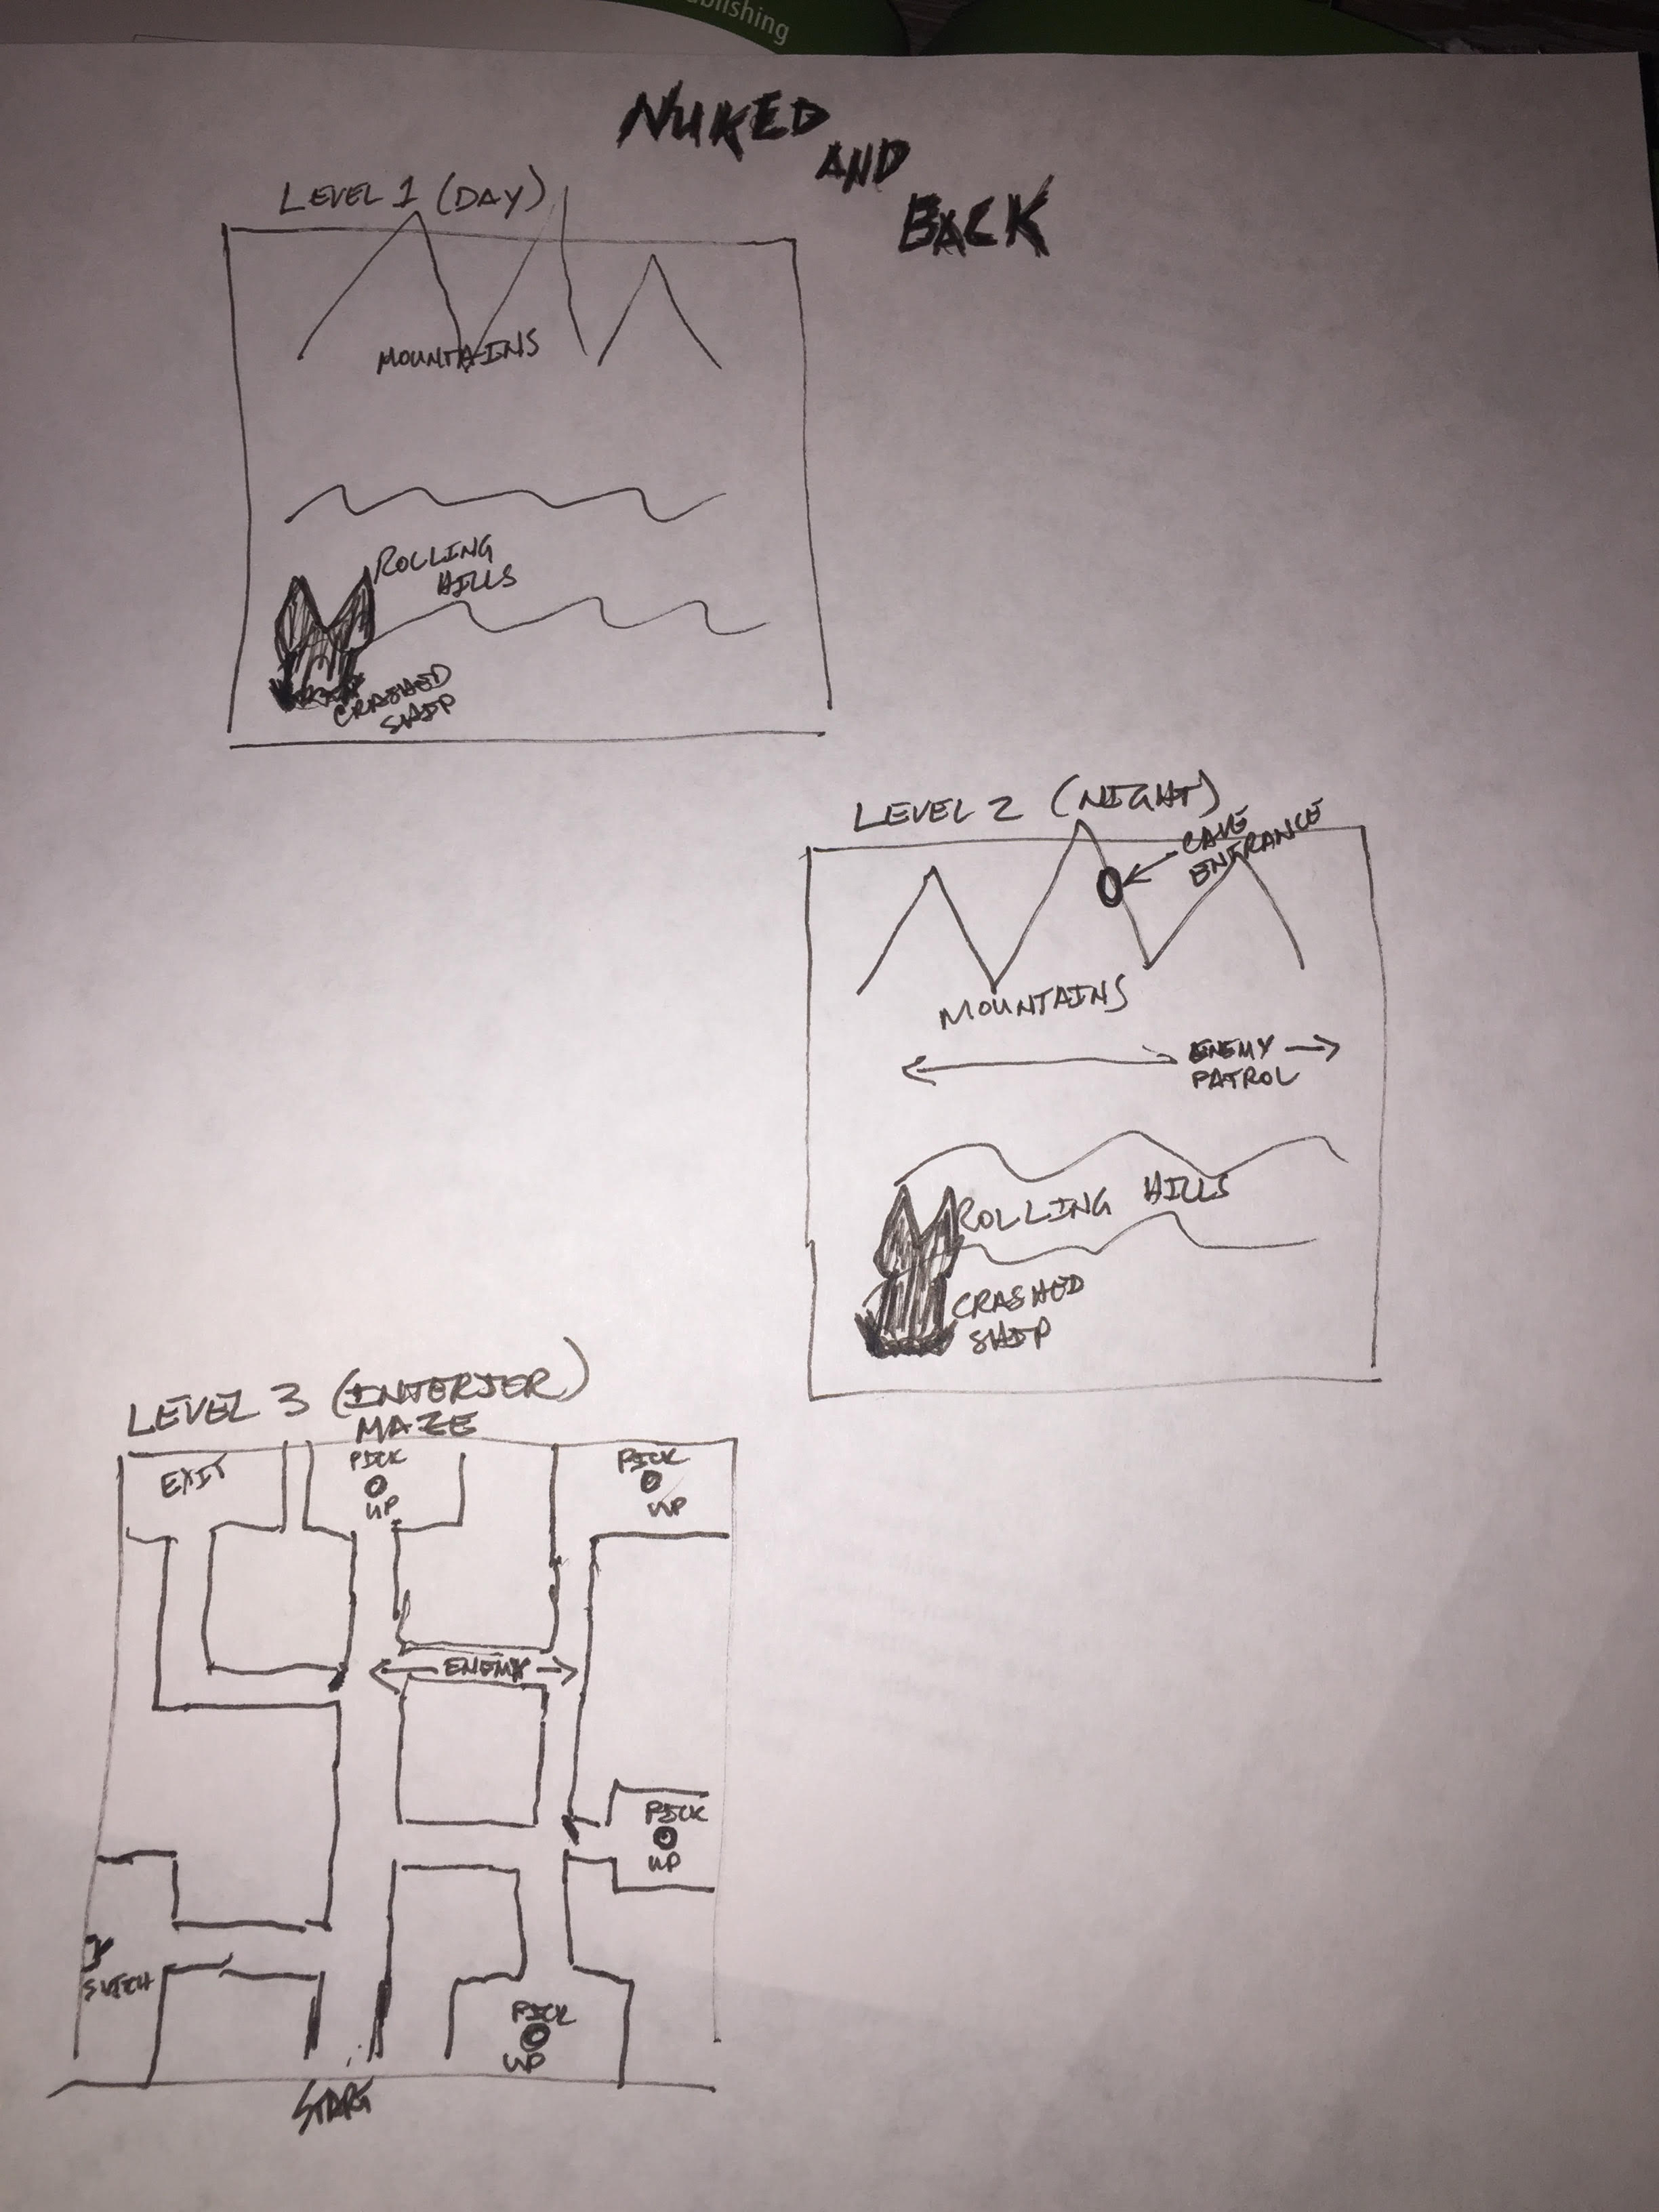 NUKED
AND
BACK
LEVEL 1 (DAY)
MOUNTAINS
ROLLING
HILLS
CRASHED
SHIP
LEVEL 2 (NIGHT)
CAVE
ENTRANCE
MOUNTAINS
ENEMY
PATROL
ROLLING HILLS
CRASHED
SHIP
LEVEL 3 (INTERIER)
MAZE
EXIT
PICK
UP
PICK
UP
ENEMY
PICK
UP
SWITCH
PICK
UP